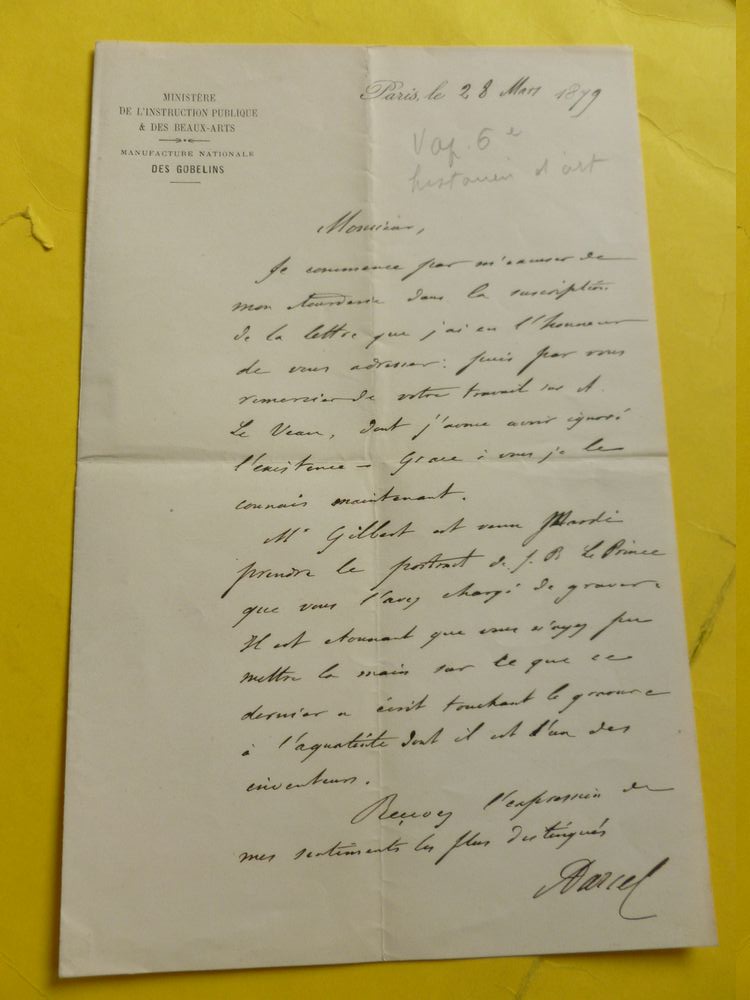 MINISTÈRE
DE L'INSTRUCTION PUBLIQUE
& DES BEAUX-ARTS
MANUFACTURE NATIONALE
DES GOBELINS
Paris, le 28 Mars 1879
Vap. 6e
historien d'art
Monsieur,
Je commence par m'excuser de
mon étourderie dans la suscription
de la lettre que j'ai eu l'honneur
de vous adresser : puis par vous
remercier de votre travail sur A.
Le Veau, dont j'avoue avoir ignoré
l'existence – Grace à vous je le
connais maintenant.
Mr Gilbert est venu Mardi
prendre le portrait de J. B Le Prince
que vous l'avez chargé de graver.
Il est étonnant que vous n'ayez pu
mettre la main sur ce que ce
dernier a écrit touchant la gravure
à l'aquatinte dont il est l'un des
inventeurs.
Recevez l'expression de
mes sentiments les plus distingués
ADarcel